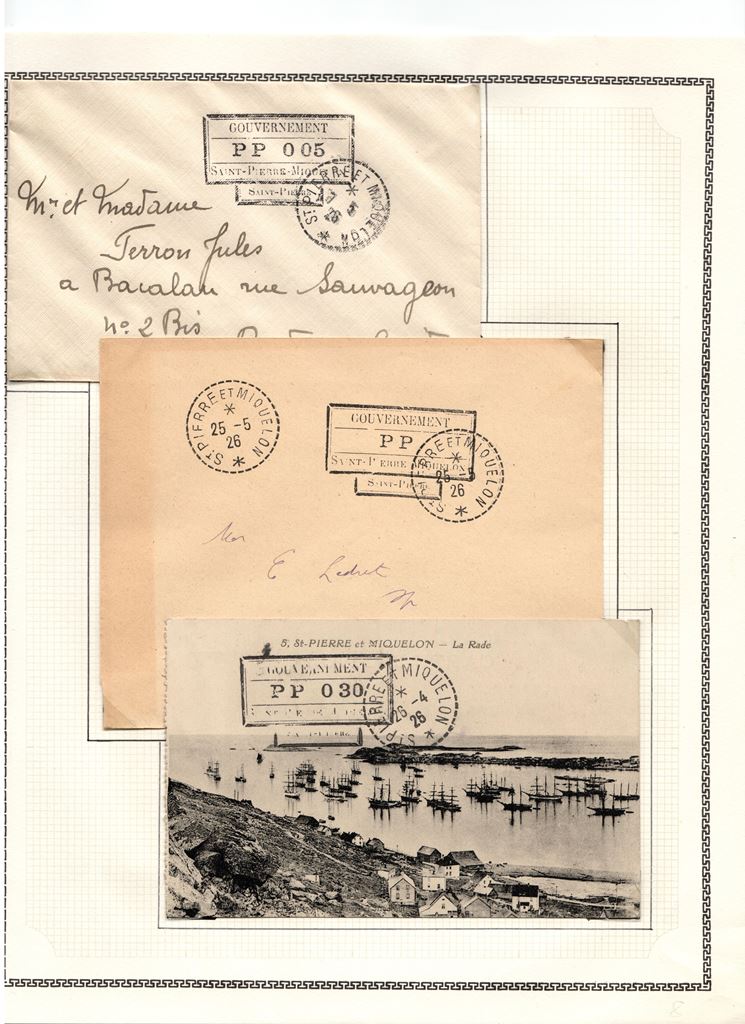 GOUVERNEMENT
PP 005
SAINT-PIERRE-MIQUE
SAINT-PIERRE
ST PIERRE ET MIQUELON
26
Mr et Madame
Terron Jules
a Bacalan rue Sauvageon
no 2 Bis
ST PIERRE ET MIQUELON
25 -5
26
GOUVERNEMENT
PP
SAINT-PIERRE MIQUELON
SAINT-PIERRE
ST PIERRE ET MIQUELON
25 -5
26
E Ledret
5. St-PIERRE et MIQUELON — La Rade
GOUVERNEMENT
PP 030
ST PIERRE ET MIQUELON
26 -4
26
8